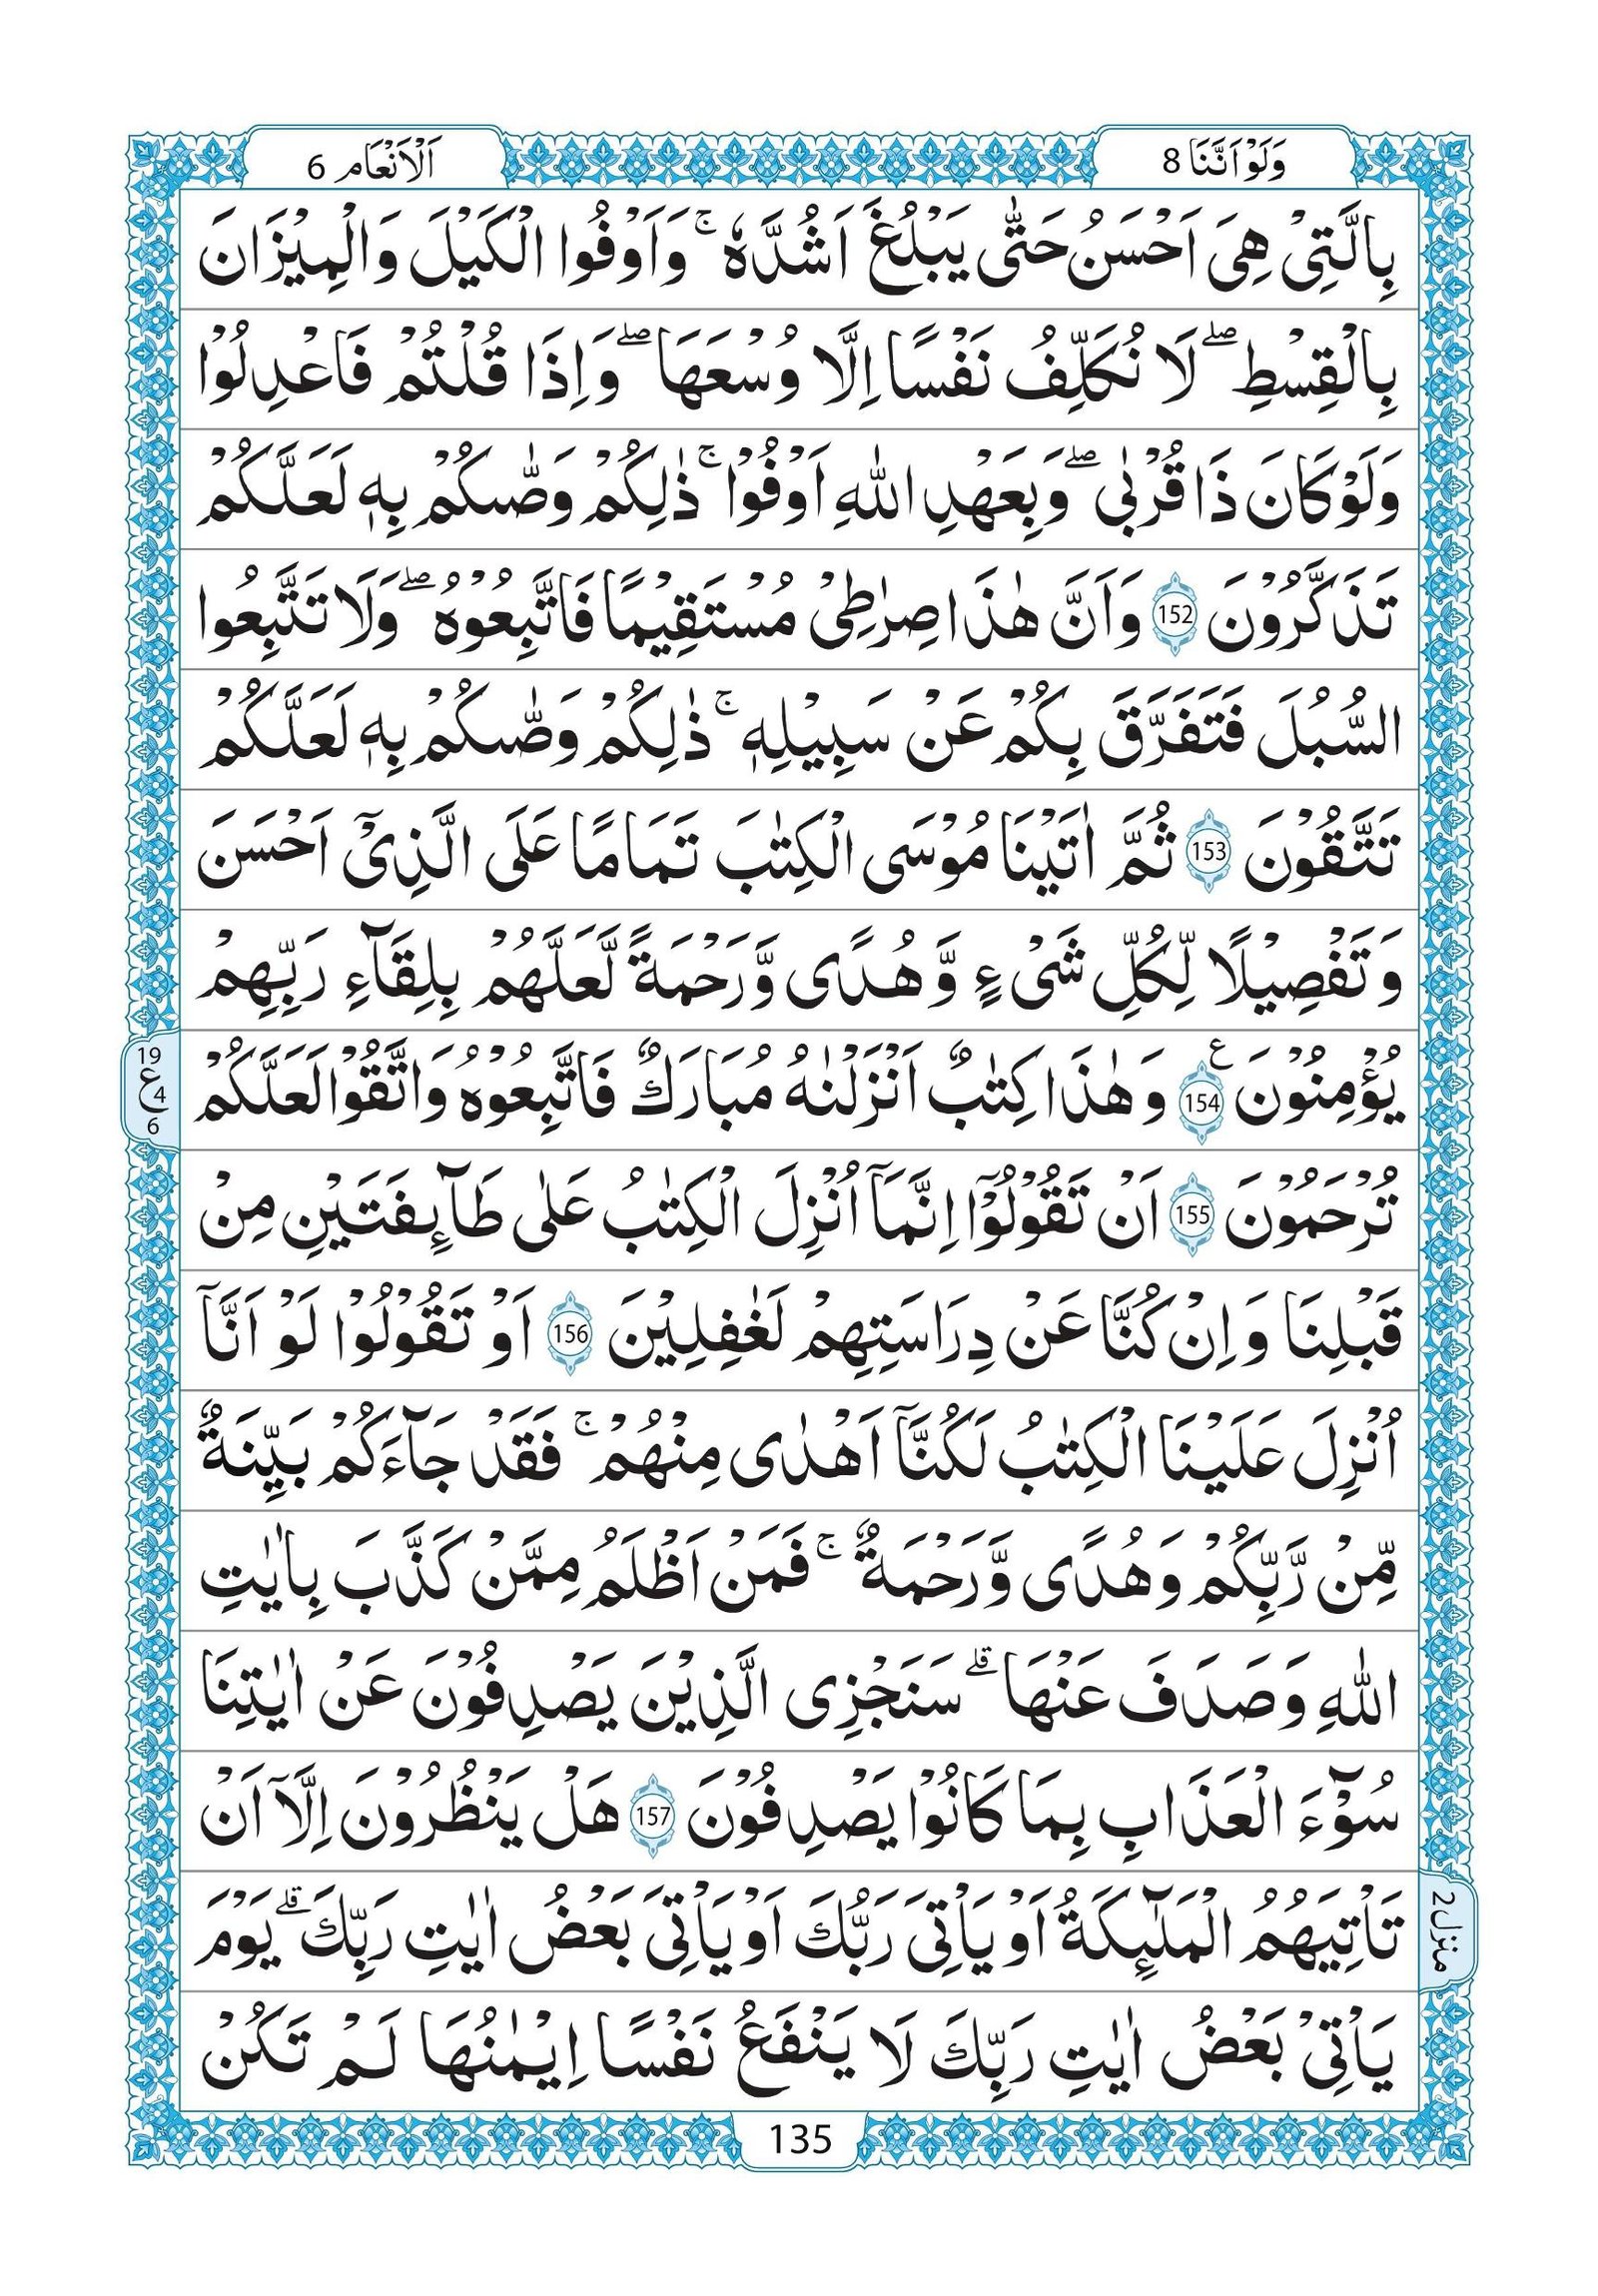 وَلَوْ اَنَّنَا 8
اَلْاَنْعَام 6
بِالَّتِیْ هِیَ اَحْسَنُ حَتّٰی یَبْلُغَ اَشُدَّهٗ ۚ وَاَوْفُوا الْكَیْلَ وَالْمِیْزَانَ
بِالْقِسْطِ ۖ لَا نُكَلِّفُ نَفْسًا اِلَّا وُسْعَهَا ۖ وَاِذَا قُلْتُمْ فَاعْدِلُوْا
وَلَوْ كَانَ ذَا قُرْبٰی ۖ وَبِعَهْدِ اللّٰهِ اَوْفُوْا ۚ ذٰلِكُمْ وَصّٰىكُمْ بِهٖ لَعَلَّكُمْ
تَذَكَّرُوْنَ 152 وَاَنَّ هٰذَا صِرٰطِیْ مُسْتَقِیْمًا فَاتَّبِعُوْهُ ۖ وَلَا تَتَّبِعُوا
السُّبُلَ فَتَفَرَّقَ بِكُمْ عَنْ سَبِیْلِهٖ ۚ ذٰلِكُمْ وَصّٰىكُمْ بِهٖ لَعَلَّكُمْ
تَتَّقُوْنَ 153 ثُمَّ اٰتَیْنَا مُوْسَی الْكِتٰبَ تَمَامًا عَلَی الَّذِیْۤ اَحْسَنَ
وَتَفْصِیْلًا لِّكُلِّ شَیْءٍ وَّهُدًی وَّرَحْمَةً لَّعَلَّهُمْ بِلِقَآءِ رَبِّهِمْ
یُؤْمِنُوْنَ ع 154 وَهٰذَا كِتٰبٌ اَنْزَلْنٰهُ مُبَارَكٌ فَاتَّبِعُوْهُ وَاتَّقُوْا لَعَلَّكُمْ
19 ع 4 6
تُرْحَمُوْنَ 155 اَنْ تَقُوْلُوْۤا اِنَّمَاۤ اُنْزِلَ الْكِتٰبُ عَلٰی طَآىِٕفَتَیْنِ مِنْ
قَبْلِنَا وَاِنْ كُنَّا عَنْ دِرَاسَتِهِمْ لَغٰفِلِیْنَ 156 اَوْ تَقُوْلُوْا لَوْ اَنَّاۤ
اُنْزِلَ عَلَیْنَا الْكِتٰبُ لَكُنَّاۤ اَهْدٰی مِنْهُمْ ۚ فَقَدْ جَآءَكُمْ بَیِّنَةٌ
مِّنْ رَّبِّكُمْ وَهُدًی وَّرَحْمَةٌ ۚ فَمَنْ اَظْلَمُ مِمَّنْ كَذَّبَ بِاٰیٰتِ
اللّٰهِ وَصَدَفَ عَنْهَا ۗ سَنَجْزِی الَّذِیْنَ یَصْدِفُوْنَ عَنْ اٰیٰتِنَا
سُوْٓءَ الْعَذَابِ بِمَا كَانُوْا یَصْدِفُوْنَ 157 هَلْ یَنْظُرُوْنَ اِلَّاۤ اَنْ
تَاْتِیَهُمُ الْمَلٰٓىِٕكَةُ اَوْ یَاْتِیَ رَبُّكَ اَوْ یَاْتِیَ بَعْضُ اٰیٰتِ رَبِّكَ ۗ یَوْمَ
منزل 2
یَاْتِیْ بَعْضُ اٰیٰتِ رَبِّكَ لَا یَنْفَعُ نَفْسًا اِیْمٰنُهَا لَمْ تَكُنْ
135